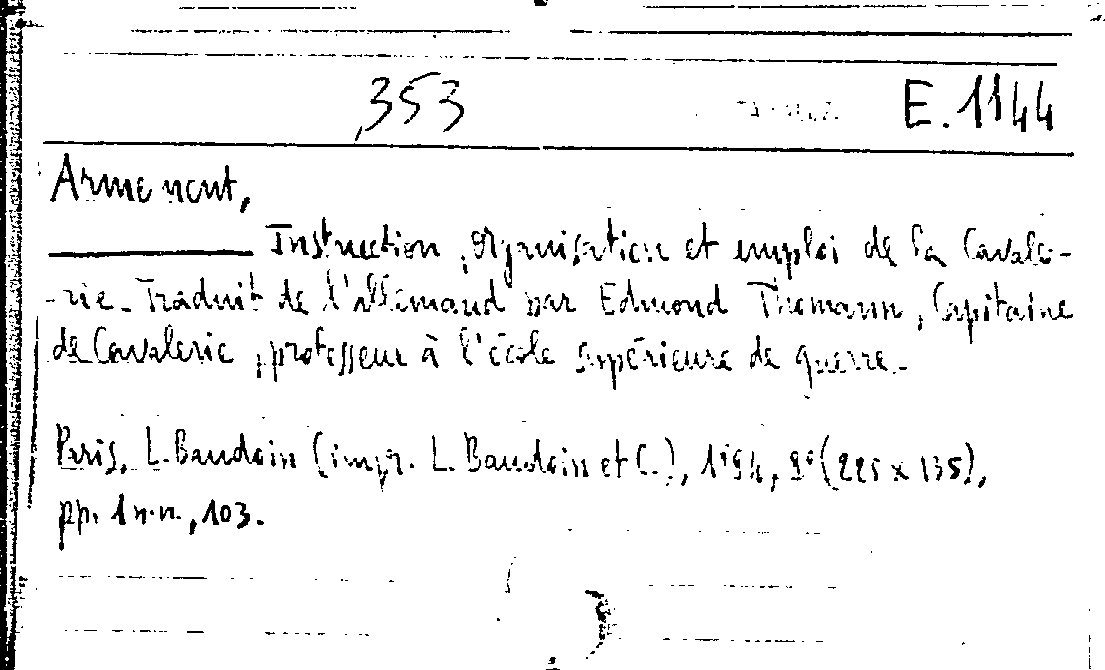 353 E.1144
Armement,
Instruction, organisation et emploi de la Cavale-
-rie. Traduit de l'allemand par Edmond Thomann, Capitaine
de Cavalerie, professeur à l'école supérieure de guerre.
Paris, L. Baudoin (impr. L. Baudoin et C.), 1894, 8° (225 x 135),
pp. 1 n.n., 103.